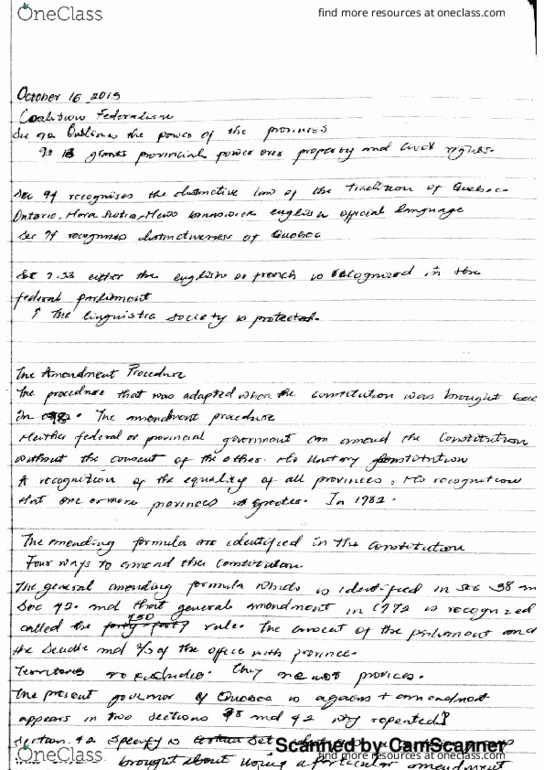 OneClass
find more resources at oneclass.com
October 16 2015
Coalition Federalism
Sec 92 Outlines the power of the provinces
13 grants provincial power over property and civil rights.
Sec 94 recognises the distinctive law of the tradition of Quebec
Ontario, Nova Scotia, New Brunswick english official language
Sec 94 recognises distinctiveness of Quebec
133 either the english or french is recognized in the
federal parliment
↑ The linguistic society is protected.
The Amendment Procedure
The procedure that was adapted when the constitution was brought
In 1982. The amendment procedure
Neither federal or provincial government can amend the constitution
without the consent of the other. No Unitary constitution
A recognition of the equality of all provinces, No recognition
that one or more provinces is greater. In 1982.
The amending formula are identified in the constitution
Four ways to amend the constitution.
The general amending formula which is identified in Sec 38
Sec 42. and that general amendment in is recognized
called the 7/50 rule. The of the parliment and
the Senate and 2/3 of the with province.
Territories excluded. They are not provinces.
The present governor of Quebec is against amendment
appears in two sections 38 and 42 why repeated?
Section. 42 Specify
Scanned by CamScanner
OneClass
find more resources at oneclass.com
brought about using a particular amendment